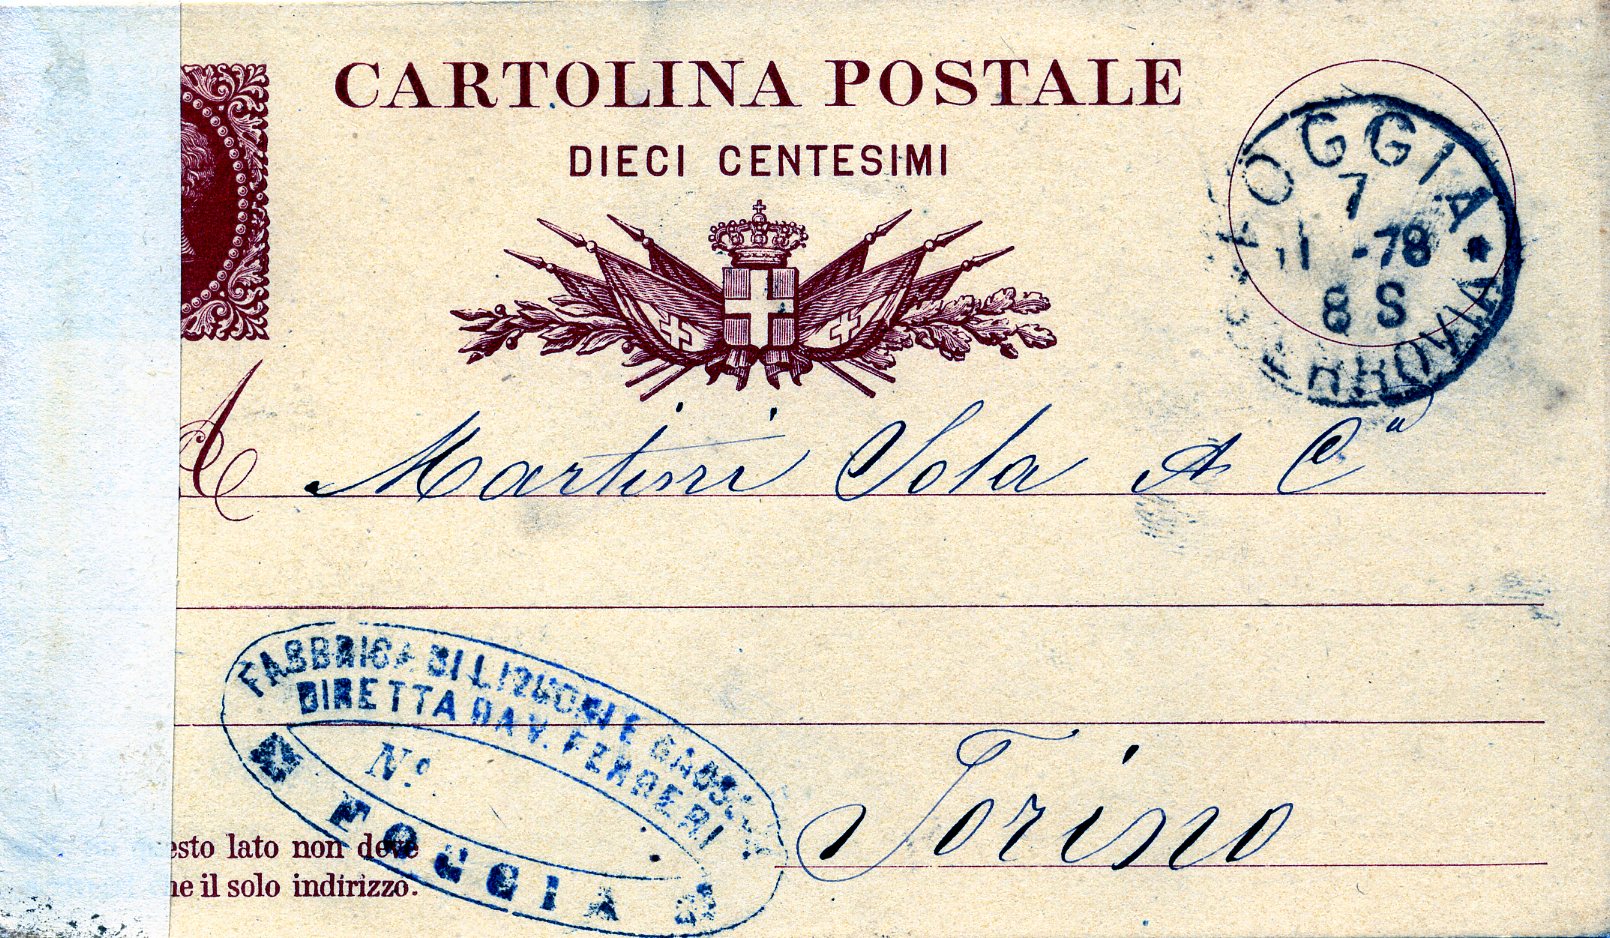 CARTOLINA POSTALE
DIECI CENTESIMI
FOGGIA
7
11 -78
8 S
FERROVIA
A Martini Sola & Cª
FABBRICA DI LIQUORI E GAOS
DIRETTA DA V. FERRERI
Nº
FOGGIA
Torino
esto lato non deve
ne il solo indirizzo.